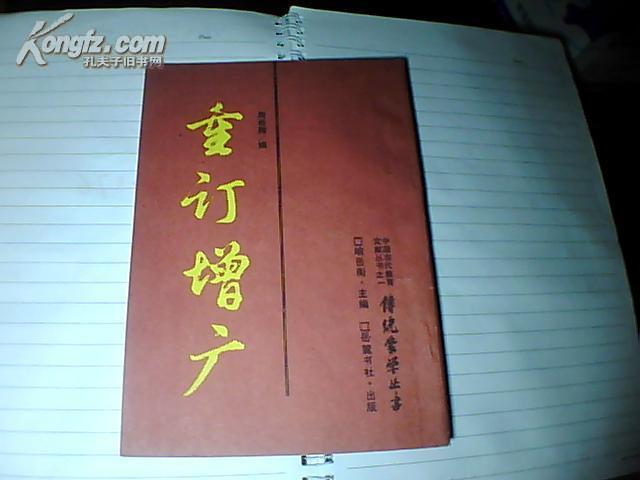 Kongfz.com
孔夫子旧书网
重订增广
周希陶·编
中国古代教育
文献丛书之一
傳統蒙学丛書
喻岳衡·主编
岳麓书社·出版